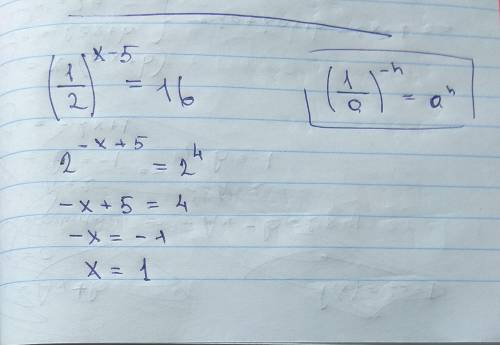 (1/2)^(x-5) = 16
(1/a)^(-n) = a^n
2^(-x+5) = 2^4
-x+5 = 4
-x = -1
x = 1